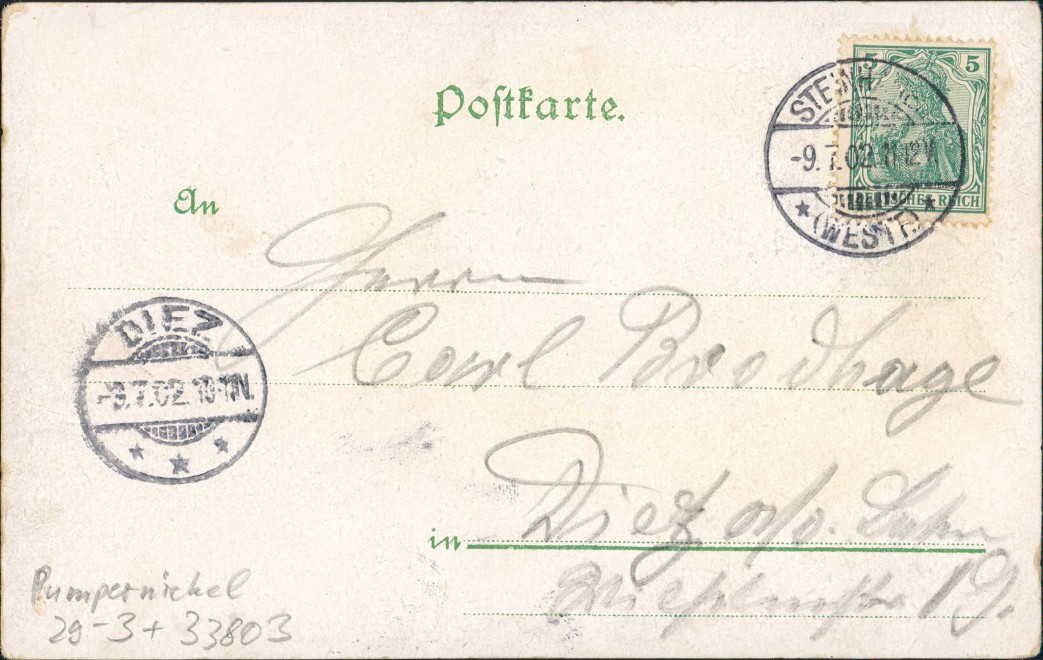 Postkarte.
5 5
STEINH
-9.7.02. 11-12 V.
REICH
(WESTF.)
An
Herrn
DIEZ
Carl Brodhage
-9.7.02. 10-11N.
Diez a/d. Lahn
in
19.
Pumpernickel
29-3+ 33803